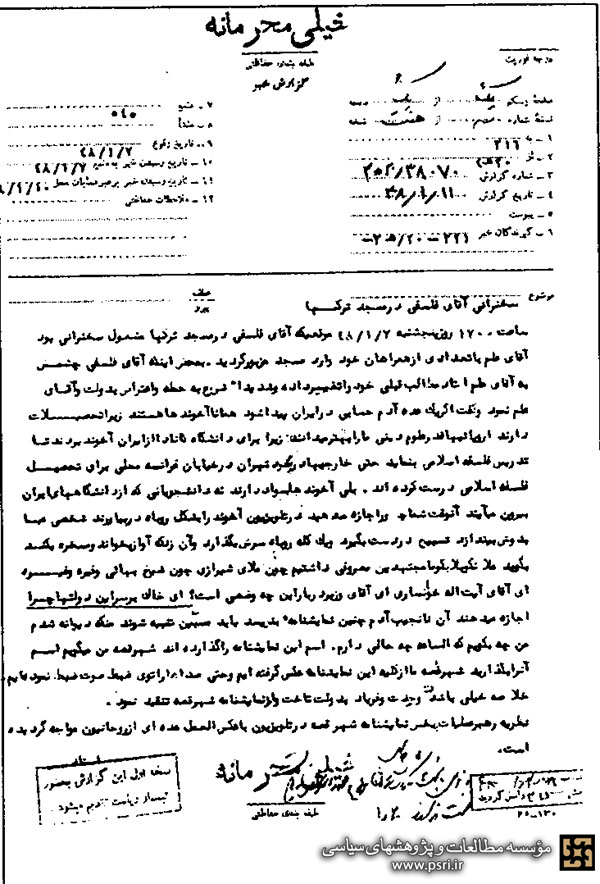 خیلی محرمانه
طبقه بندی حفاظتی
گزارش خبر
درجه فوریت
۷ - منبع ۵۴۰
۸ - منشأ
۹ - تاریخ وقوع ۴۸/۱/۷
۱۰ - تاریخ رسیدن خبر به منبع ۴۸/۱/۷
۱۱ - تاریخ رسیدن خبر به رهبر عملیات محل
۱۲ - ملاحظات حفاظتی
۱ - به ۳۱۶
۲ - از ۲۰ه۲۰
۳ - شماره گزارش
۴ - تاریخ گزارش
۵ - پیوست
۶ - گیرندگان خبر
موضوع سخنرانی آقای فلسفی در مسجد ترکها
ساعت ۱۷۰۰ روز پنجشنبه ۴۸/۱/۷ موقعیکه آقای فلسفی در مسجد ترکها مشغول سخنرانی بود
آقای علم با تعدادی از همراهان خود وارد مسجد مزبور گردید. بمحض اینکه آقای فلسفی چشمش
به آقای علم افتاد مطالب قبلی خود را تغییر داده و شدیدا" شروع به حمله و اعتراض بدولت و آقای
علم نمود و گفت اگر یک عده آدم حسابی در ایران پیدا شود همانا آخوندها هستند زیرا تحصیلات
دارند اروپائیها قدر علوم دینی ما را بهتر میدانند زیرا برای دانشگاه کانادا از ایران آخوند بردند تا
تدریس فلسفه اسلامی بنماید حتی خارجیها در خود تهران در خیابان فرانسه محلی برای تحصیل
فلسفه اسلامی درست کرده اند. بلی آخوندها سواد دارند نه دانشجویانی که از دانشگاههای ایران
بیرون میآیند آنوقت شما چرا اجازه میدهید در تلویزیون آخوند را بشکل روباه در بیاورند شخصی عبا
بدوش بیندازد تسبیح در دست بگیرد و یک کله روباه سرش بگذارد و آن زنکه آواز بخواند و مسخره بکند
بگوید ملا نگو بلا بگو ما مجتهدین معروفی داشتیم چون ملای شیرازی چون شیخ بهائی و غیره و غیره
ای آقای آیت اله خونساری ای آقای وزیر دربار این چه وضعی است؟ ای خاک بر سر این دولتها چرا
اجازه میدهند آن نانجیب آدم چنین نمایشنامه بنویسد باید مسببین تنبیه شوند منکه دیوانه شدم
من چه بگویم که الساعه چه حالی دارم. اسم این نمایشنامه را گذارده اند شهر قصه من میگویم اسم
آنرا بگذارید شهر قصه ما از کلیه این نمایشنامه عکس گرفته ایم و حتی صدا ها را توی ضبط صوت ضبط نموده ایم
خلاصه خیلی با شدت و حدت و فریاد بدولت تاخت و از نمایشنامه شهر قصه تنقید نمود.
نظریه رهبر عملیات پخش نمایشنامه شهر قصه در تلویزیون با عکس العمل عده ای از روحانیون مواجه گردیده
است.
خیلی محرمانه
طبقه بندی حفاظتی
نسخه اول این گزارش بحضور
تیمسار ریاست تقدیم میشود
مؤسسه مطالعات و پژوهشهای سیاسی
www.psri.ir